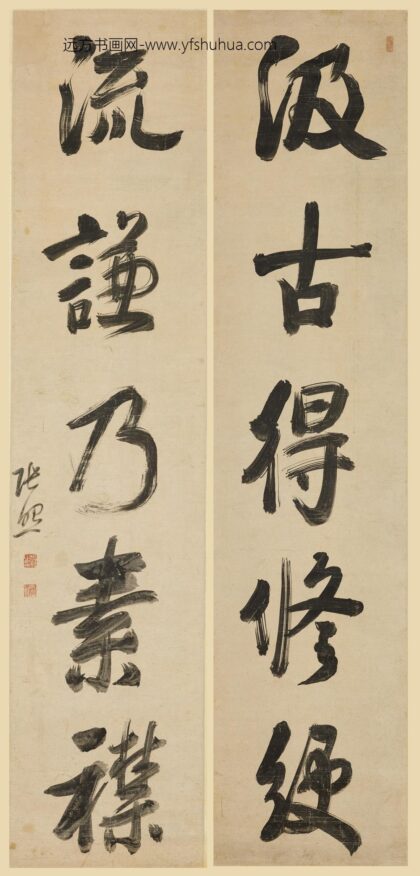 远方书画网-www.yfshuhua.com
汲古得修綆
流謙乃素襟
張照